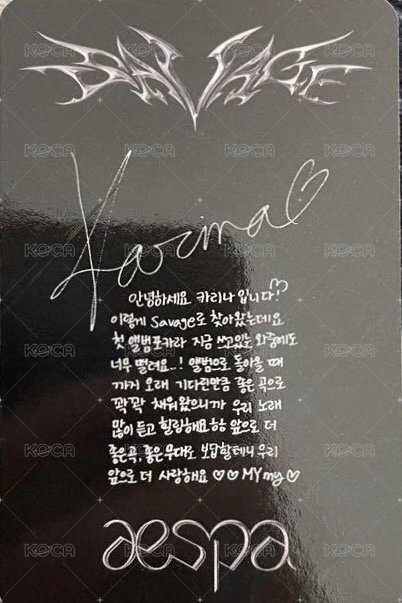 SAVAGE
Karina
안녕하세요 카리나 입니다!♡
이렇게 Savage로 찾아왔는데요
첫 앨범포카라 지금 쓰고있는 와중에도
너무 떨려요..! 앨범으로 돌아올 때
까지 오래 기다린만큼 좋은 곡으로
꽉꽉 채워왔으니까 우리 노래
많이 듣고 힐링해요ㅎㅎ 앞으로 더
좋은곡, 좋은무대로 보답할테니 우리
앞으로 더 사랑해요 ♡♡ MYmy♡
aespa
KOCA